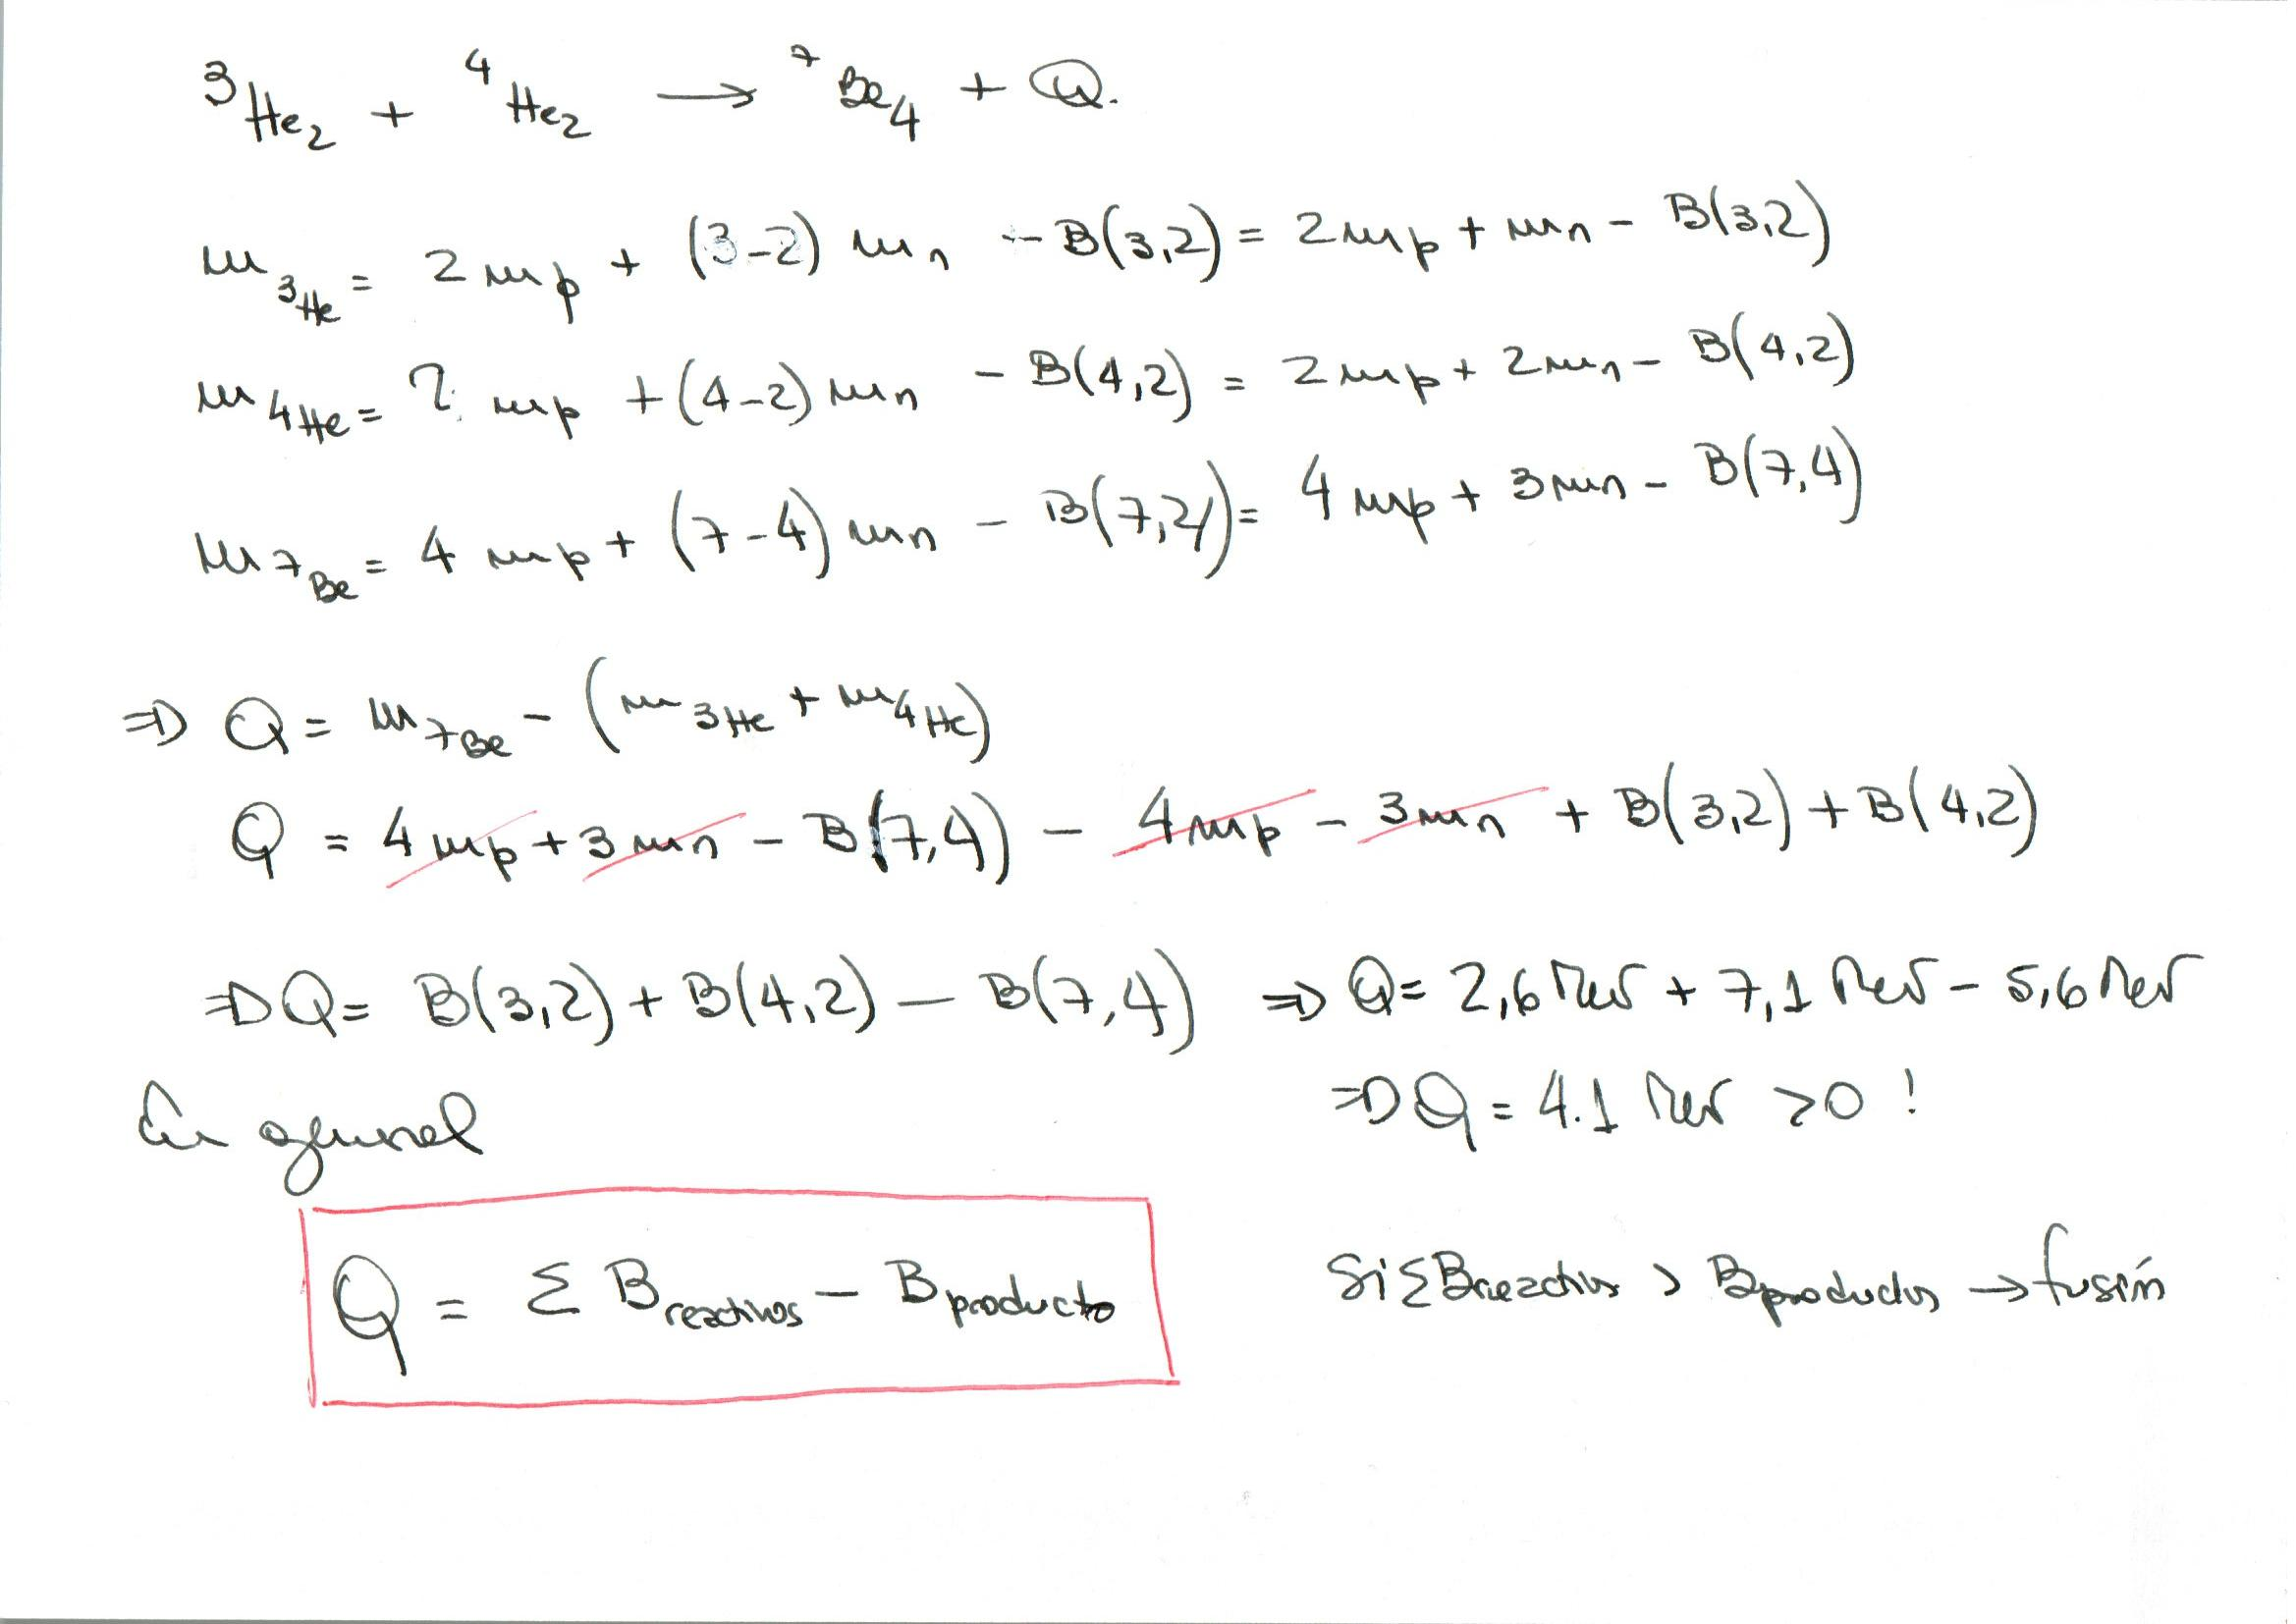 ³He₂ + ⁴He₂ → ⁷Be₄ + Q.
m₃He = 2 mp + (3-2) mn - B(3,2) = 2mp + mn - B(3,2)
m₄He = 2 mp + (4-2) mn - B(4,2) = 2mp + 2mn - B(4,2)
m₇Be = 4 mp + (7-4) mn - B(7,4) = 4mp + 3mn - B(7,4)
⇒ Q = m₇Be - (m₃He + m₄He)
Q = 4mp + 3mn - B(7,4) - 4mp - 3mn + B(3,2) + B(4,2)
⇒ Q = B(3,2) + B(4,2) - B(7,4) ⇒ Q = 2,6 MeV + 7,1 MeV - 5,6 MeV
⇒ Q = 4.1 MeV >0 !
En general
Q = Σ Breactivos - Bproducto
Si Σ Breactivos > Bproductos → fusión